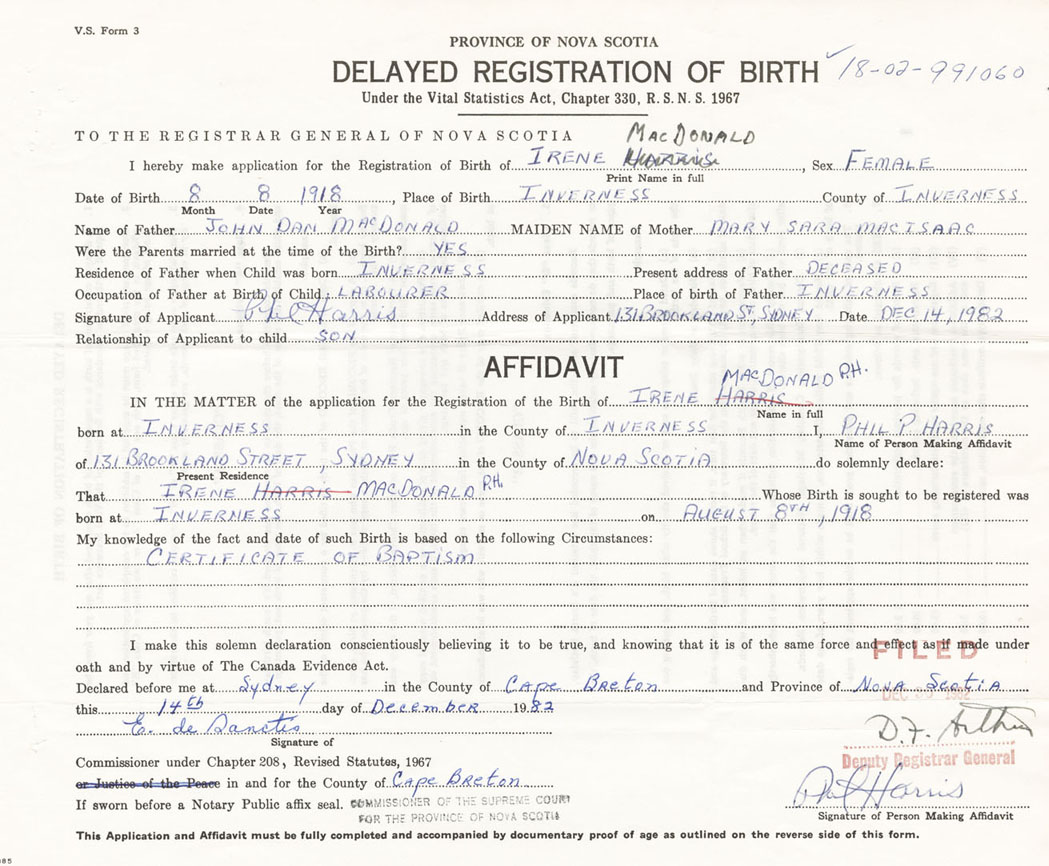 V.S. Form 3
PROVINCE OF NOVA SCOTIA
DELAYED REGISTRATION OF BIRTH 18-02-991060
Under the Vital Statistics Act, Chapter 330, R.S.N.S. 1967
TO THE REGISTRAR GENERAL OF NOVA SCOTIA MACDONALD
I hereby make application for the Registration of Birth of IRENE HARRIS, Sex FEMALE
Print Name in full
Date of Birth 8 8 1918, Place of Birth INVERNESS County of INVERNESS
Month Date Year
Name of Father JOHN DAN MACDONALD MAIDEN NAME of Mother MARY SARA MACISAAC
Were the Parents married at the time of the Birth? YES
Residence of Father when Child was born INVERNESS Present address of Father DECEASED
Occupation of Father at Birth of Child LABOURER Place of birth of Father INVERNESS
Signature of Applicant Phil Harris Address of Applicant 131 BROOKLAND ST, SYDNEY Date DEC 14, 1982
Relationship of Applicant to child SON
AFFIDAVIT
MACDONALD P.H.
IN THE MATTER of the application for the Registration of the Birth of IRENE HARRIS
Name in full
born at INVERNESS in the County of INVERNESS I, PHIL P. HARRIS
Name of Person Making Affidavit
of 131 BROOKLAND STREET, SYDNEY in the County of NOVA SCOTIA do solemnly declare:
Present Residence
That IRENE HARRIS MACDONALD P.H. Whose Birth is sought to be registered was
born at INVERNESS on AUGUST 8TH, 1918
My knowledge of the fact and date of such Birth is based on the following Circumstances:
CERTIFICATE OF BAPTISM
I make this solemn declaration conscientiously believing it to be true, and knowing that it is of the same force and effect as if made under
FILED
oath and by virtue of The Canada Evidence Act.
Declared before me at Sydney in the County of Cape Breton and Province of Nova Scotia
this 14th day of December 1982
E. de Sanctis
D.F. Arthur
Signature of
Deputy Registrar General
Commissioner under Chapter 208, Revised Statutes, 1967
or Justice of the Peace in and for the County of Cape Breton
Phil Harris
If sworn before a Notary Public affix seal. COMMISSIONER OF THE SUPREME COURT
FOR THE PROVINCE OF NOVA SCOTIA
Signature of Person Making Affidavit
This Application and Affidavit must be fully completed and accompanied by documentary proof of age as outlined on the reverse side of this form.